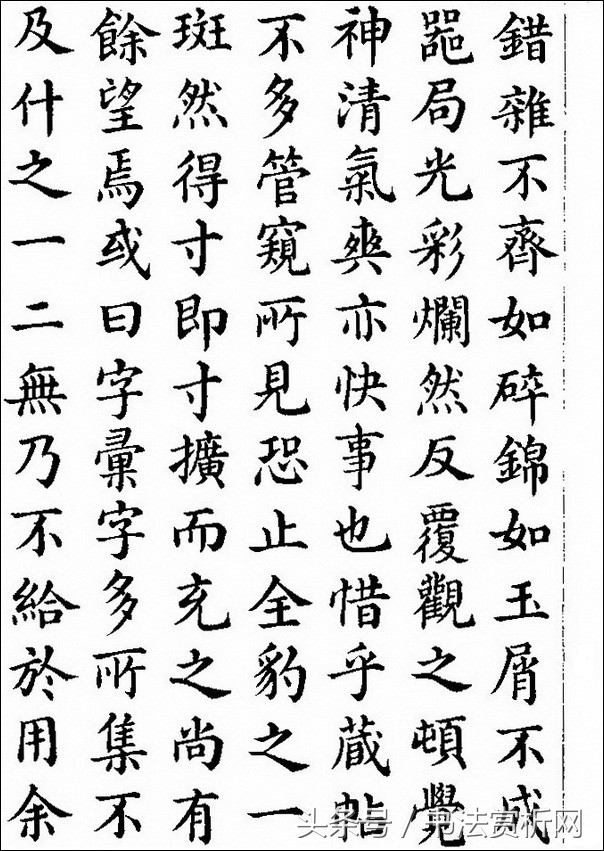 錯雜不齊如碎錦如玉屑不成
噐局光彩爛然反覆觀之頓覺
神清氣爽亦快事也惜乎蔵帖
不多管窺所見恐止全豹之一
斑然得寸即寸擴而充之尚有
餘望焉或曰字彙字多所集不
及什之一二無乃不給於用余
头条号 / 书法赏析网